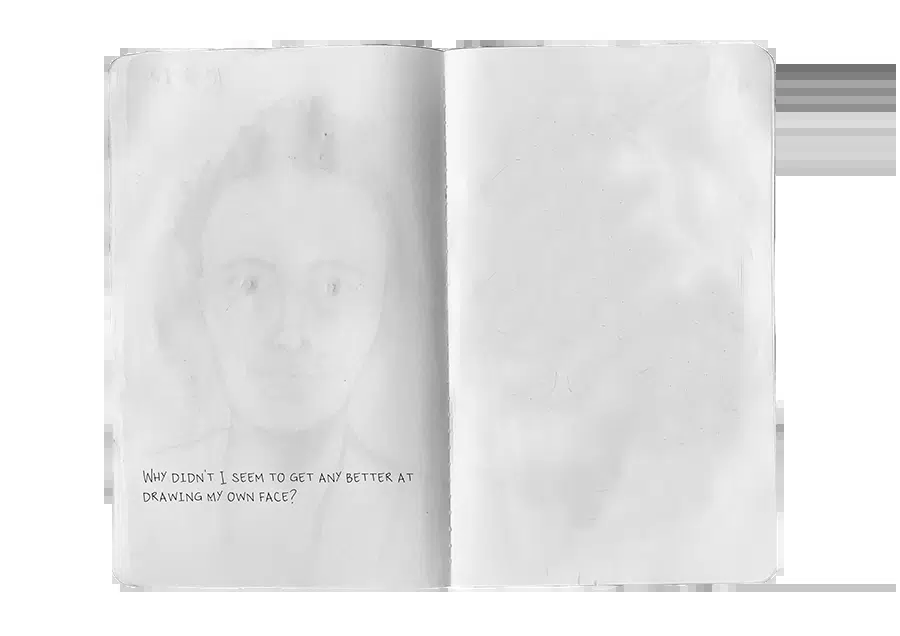 Why didn't I seem to get any better at
drawing my own face?